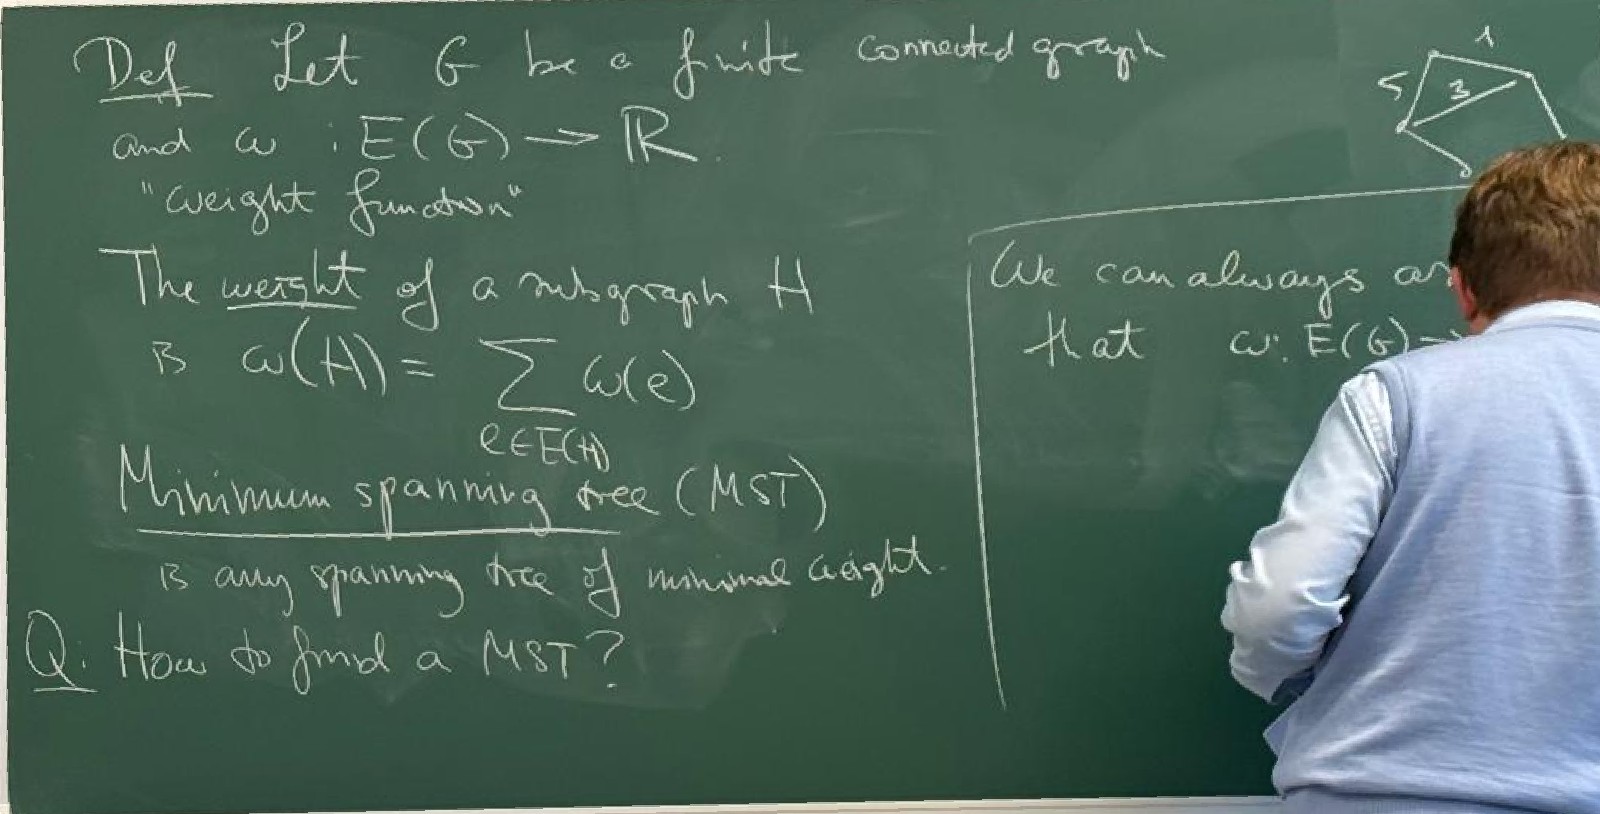 Def Let G be a finite connected graph
and ω : E(G) → ℝ.
"weight function"
The weight of a subgraph H
is ω(H) = ∑ ω(e)
e∈E(H)
Minimum spanning tree (MST)
is any spanning tree of minimal weight.
Q: How to find a MST?
1
5
3
We can always
that ω: E(G) →